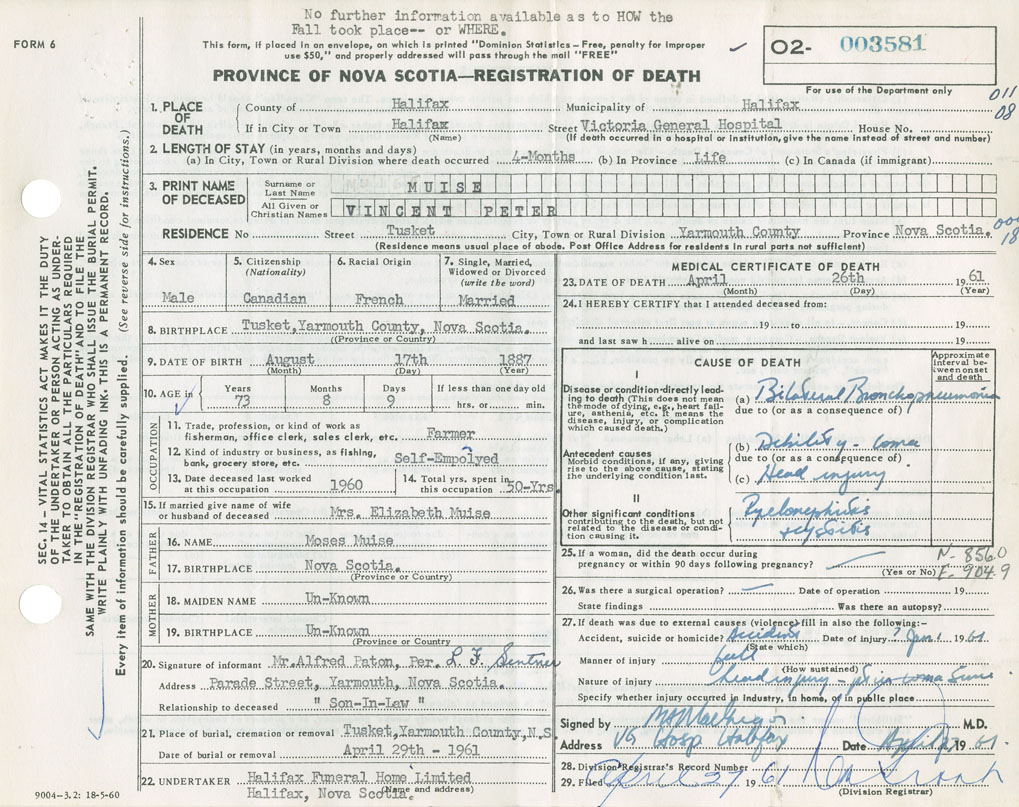 No further information available as to HOW the
Fall took place-- or WHERE.
FORM 6
This form, if placed in an envelope, on which is printed "Dominion Statistics – Free, penalty for improper
use $50," and properly addressed will pass through the mail "FREE"
O2- 003581
PROVINCE OF NOVA SCOTIA—REGISTRATION OF DEATH
For use of the Department only
011
08
1. PLACE OF DEATH
County of Halifax Municipality of Halifax
If in City or Town Halifax Street Victoria General Hospital House No.
(Name) (If death occurred in a hospital or institution, give the name instead of street and number)
2. LENGTH OF STAY (in years, months and days)
(a) In City, Town or Rural Division where death occurred 4-Months (b) In Province Life (c) In Canada (if immigrant)
3. PRINT NAME OF DECEASED
Surname or Last Name MUISE
All Given or Christian Names VINCENT PETER
RESIDENCE No Street Tusket City, Town or Rural Division Yarmouth County Province Nova Scotia.
(Residence means usual place of abode. Post Office Address for residents in rural parts not sufficient)
18
4. Sex
Male
5. Citizenship
(Nationality)
Canadian
6. Racial Origin
French
7. Single, Married,
Widowed or Divorced
(write the word)
Married
8. BIRTHPLACE Tusket,Yarmouth County, Nova Scotia.
((Province or Country)
9. DATE OF BIRTH August 17th 1887
(Month) (Day) (Year)
10. AGE in
Years 73
Months 8
Days 9
If less than one day old
hrs. or min.
OCCUPATION
11. Trade, profession or kind of work as
fisherman, office clerk, sales clerk, etc. Farmer
12. Kind of industry or business, as fishing,
bank, grocery store, etc. Self-Empolyed
13. Date deceased last worked
at this occupation 1960
14. Total yrs. spent in
this occupation 50-Yrs.
15. If married give name of wife
or husband of deceased Mrs. Elizabeth Muise
FATHER
16. NAME Moses Muise
17. BIRTHPLACE Nova Scotia.
(Province or Country)
MOTHER
18. MAIDEN NAME Un-Known
19. BIRTHPLACE Un-Known
(Province or Country
20. Signature of informant Mr.Alfred Paton, Per. L F
Address Parade Street, Yarmouth, Nova Scotia.
Relationship to deceased " Son-In-Law "
21. Place of burial, cremation or removal Tusket,Yarmouth County,N.S.
Date of burial or removal April 29th - 1961
22. UNDERTAKER Halifax Funeral Home Limited
(Name and address)
Halifax, Nova Scotia.
9004–3.2: 18-5-60
MEDICAL CERTIFICATE OF DEATH
23. DATE OF DEATH April 26th 1961
(Month) (Day) (Year)
24. I HEREBY CERTIFY that I attended deceased from:
19 to 19
and last saw h alive on 19
CAUSE OF DEATH
Approximate
interval be-
tween onset
and death
I
Disease or condition directly lead-
ing to death (This does not mean
the mode of dying, e.g., heart fail-
ure, asthenia, etc. It means the
disease, injury, or complication
which caused death.)
(a) Bilateral Bronchopneumonia
due to (or as a consequence of)
Antecedent causes
Morbid conditions, if any, giving
rise to the above cause, stating
the underlying condition last.
(b) Debility - coma
due to (or as a consequence of)
(c) Head injury
II
Other significant conditions
contributing to the death, but not
related to the disease or condi-
tion causing it.
Pyelonephritis
+cystitis
25. If a woman, did the death occur during
pregnancy or within 90 days following pregnancy?
(Yes or No)
N- 856.0
E- 904.9
26. Was there a surgical operation? Date of operation 19
State findings Was there an autopsy?
27. If death was due to external causes (violence) fill in also the following:-
Accident, suicide or homicide? Accident Date of injury ? Jan 1 1961
(State which)
Manner of injury fall
(How sustained)
Nature of injury head injury - in coma since
Specify whether injury occurred in Industry, in home, or in public place
Signed by M.D.
Address VG Hosp Halifax Date April 27 1961
28. Division Registrar's Record Number
29. Filed April 27 1961
(Division Registrar)
SEC. 14 — VITAL STATISTICS ACT MAKES IT THE DUTY
OF THE UNDERTAKER OR PERSON ACTING AS UNDER-
TAKER TO OBTAIN ALL THE PARTICULARS REQUIRED
IN THE "REGISTRATION OF DEATH" AND TO FILE THE
SAME WITH THE DIVISION REGISTRAR WHO SHALL ISSUE THE BURIAL PERMIT.
WRITE PLAINLY WITH UNFADING INK. THIS IS A PERMANENT RECORD.
Every item of information should be carefully supplied. (See reverse side for instructions.)